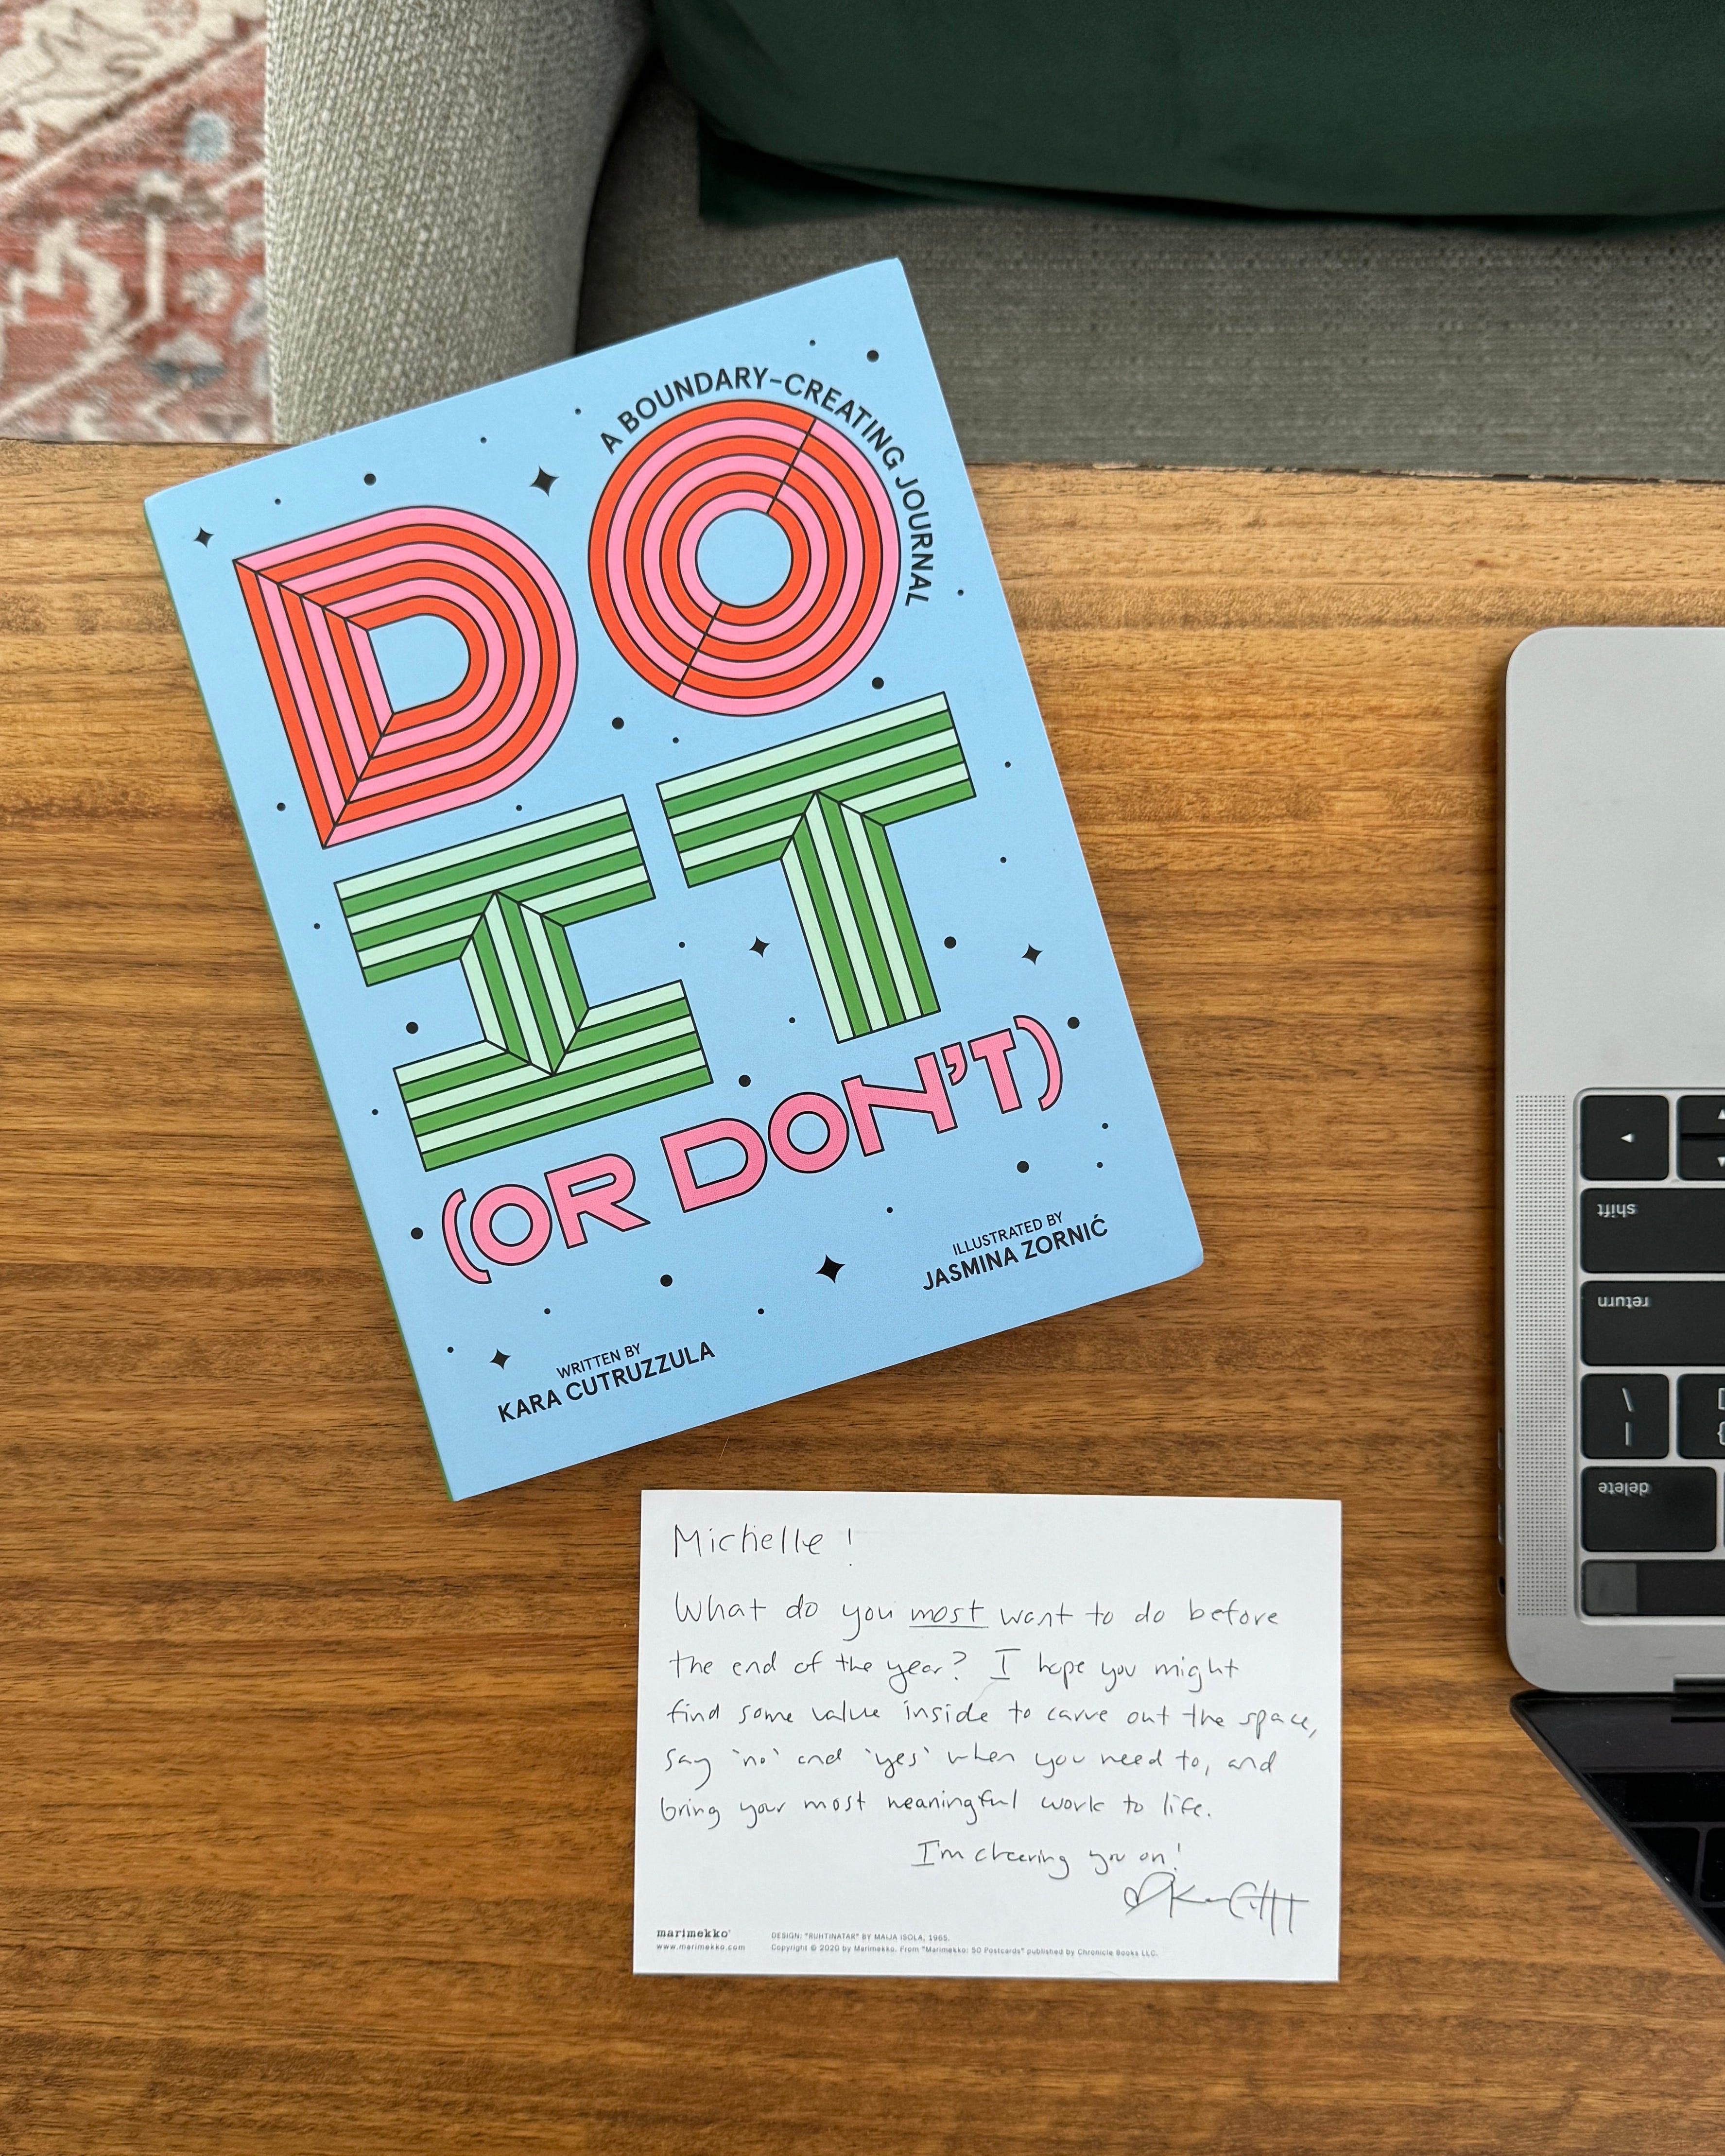 A BOUNDARY-CREATING JOURNAL
DO
IT
(OR DON'T)
WRITTEN BY
KARA CUTRUZZULA
ILLUSTRATED BY
JASMINA ZORNIĆ
shift
return
\
|
{
delete
Michelle!
What do you most want to do before
the end of the year? I hope you might
find some value inside to carve out the space,
say 'no' and 'yes' when you need to, and
bring your most meaningful work to life.
I'm cheering you on!
marimekko®
www.marimekko.com
DESIGN: "RUHTINATAR" BY MAIJA ISOLA, 1965.
Copyright © 2020 by Marimekko. From "Marimekko: 50 Postcards" published by Chronicle Books LLC.